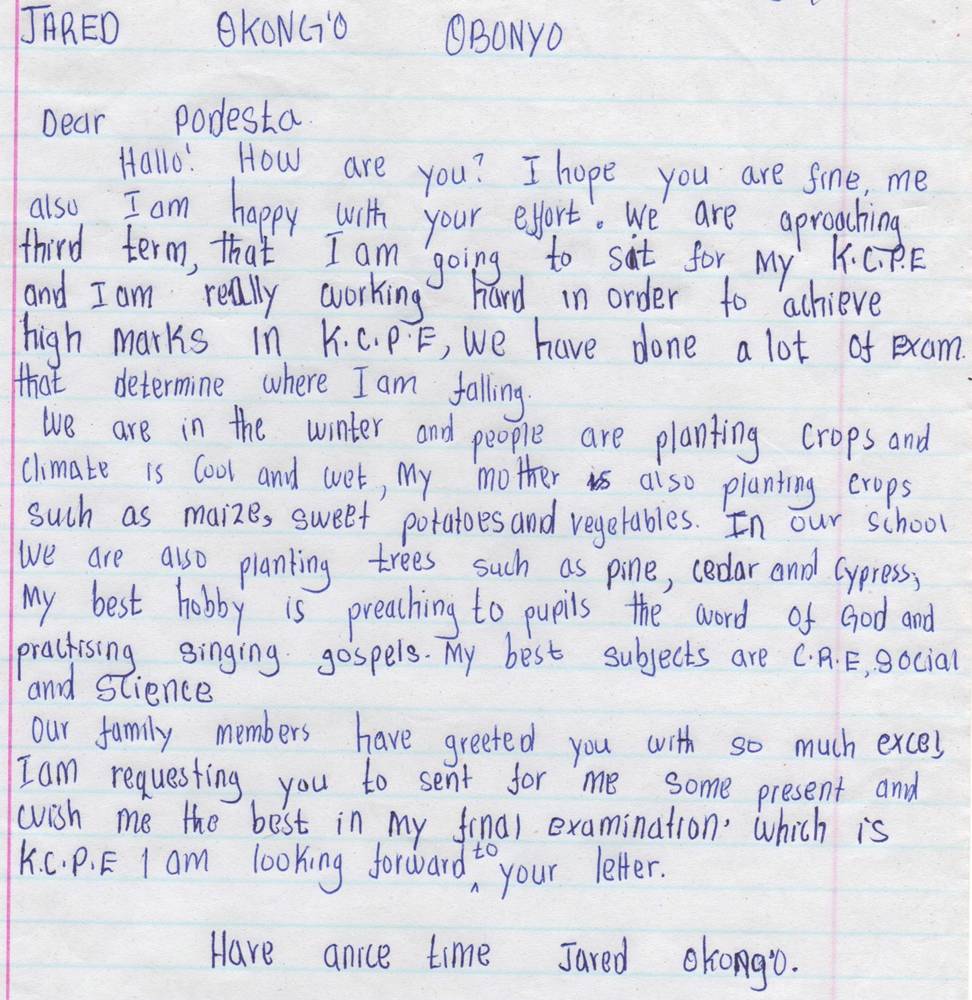 JARED OKONG'O OBONYO
Dear Podesta.
Hallo! How are you? I hope you are fine, me
also I am happy with your effort. We are aproaching
third term, that I am going to sit for My K.C.P.E
and I am really working hard in order to achieve
high marks in K.C.P.E, we have done a lot of exam.
that determine where I am falling.
We are in the winter and people are planting crops and
climate is cool and wet, My mother is also planting crops
such as maize, sweet potatoes and vegetables. In our school
we are also planting trees such as pine, cedar and cypress,
My best hobby is preaching to pupils the word of God and
practising singing gospels. My best subjects are C.R.E, social
and science
Our family members have greeted you with so much excel,
I am requesting you to sent for me some present and
wish me the best in my final examination. which is
K.C.P.E I am looking forward to your letter.
Have anice time Jared Okong'o.